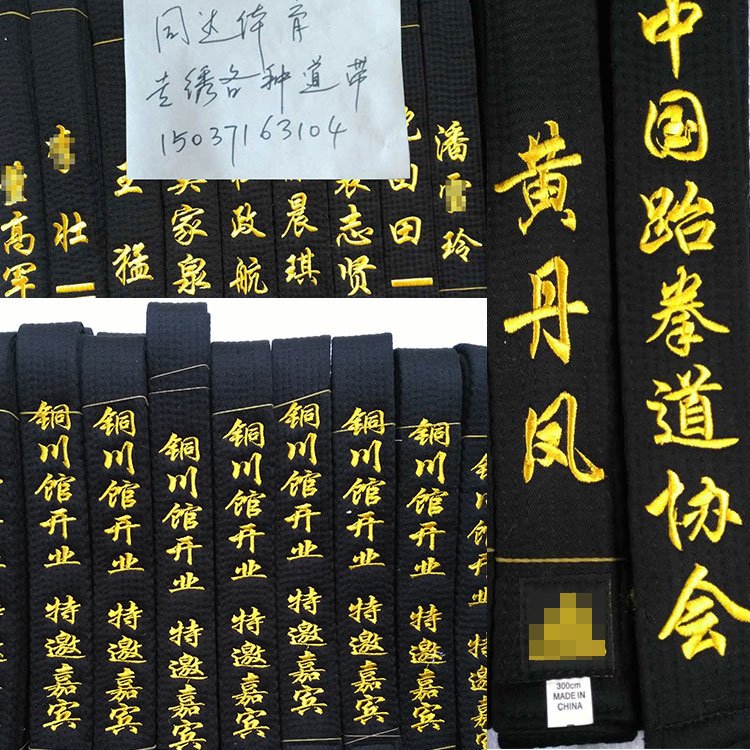 同达体育
专绣各种道带
15037163104
高军
壮
王猛
家泉
政航
晨琪
志贤
田田
潘
玲
黄丹凤
中国跆拳道协会
铜川馆开业 特邀嘉宾
铜川馆开业 特邀嘉宾
铜川馆开业 特邀嘉宾
铜川馆开业 特邀嘉宾
铜川馆开业 特邀嘉宾
铜川馆开业 特邀嘉宾
铜川馆开业 特邀嘉宾
铜川馆开业 特邀嘉宾
300cm
MADE IN
CHINA